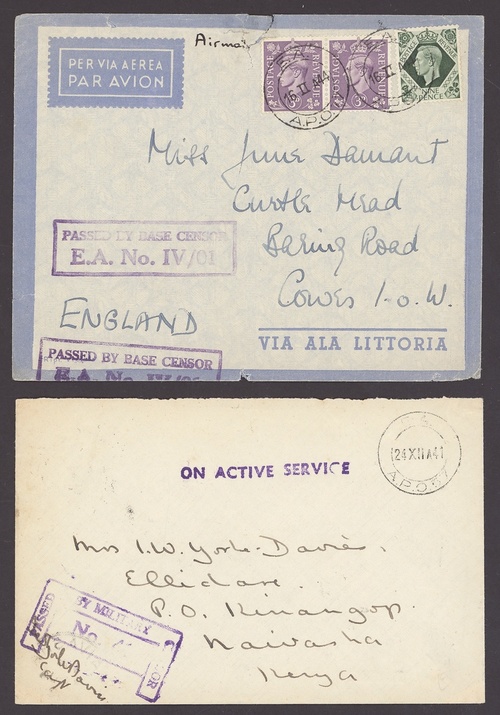 PER VIA AEREA
PAR AVION
Airmail
POSTAGE REVENUE
POSTAGE REVENUE
NINE PENCE
16 II A41
A.P.O.
Miss June Damant
Curtle Mead
Baring Road
Cowes I.o.W.
PASSED BY BASE CENSOR
E.A. No. IV/01
ENGLAND
VIA ALA LITTORIA
PASSED BY BASE CENSOR
E.A. No. IV/01
24 XII A41
A.P.O.
ON ACTIVE SERVICE
Mrs I.W. Yorke-Davies.
Ellidare.
P.O. Kinangop.
Naivasha
Kenya
PASSED BY MILITARY
No.